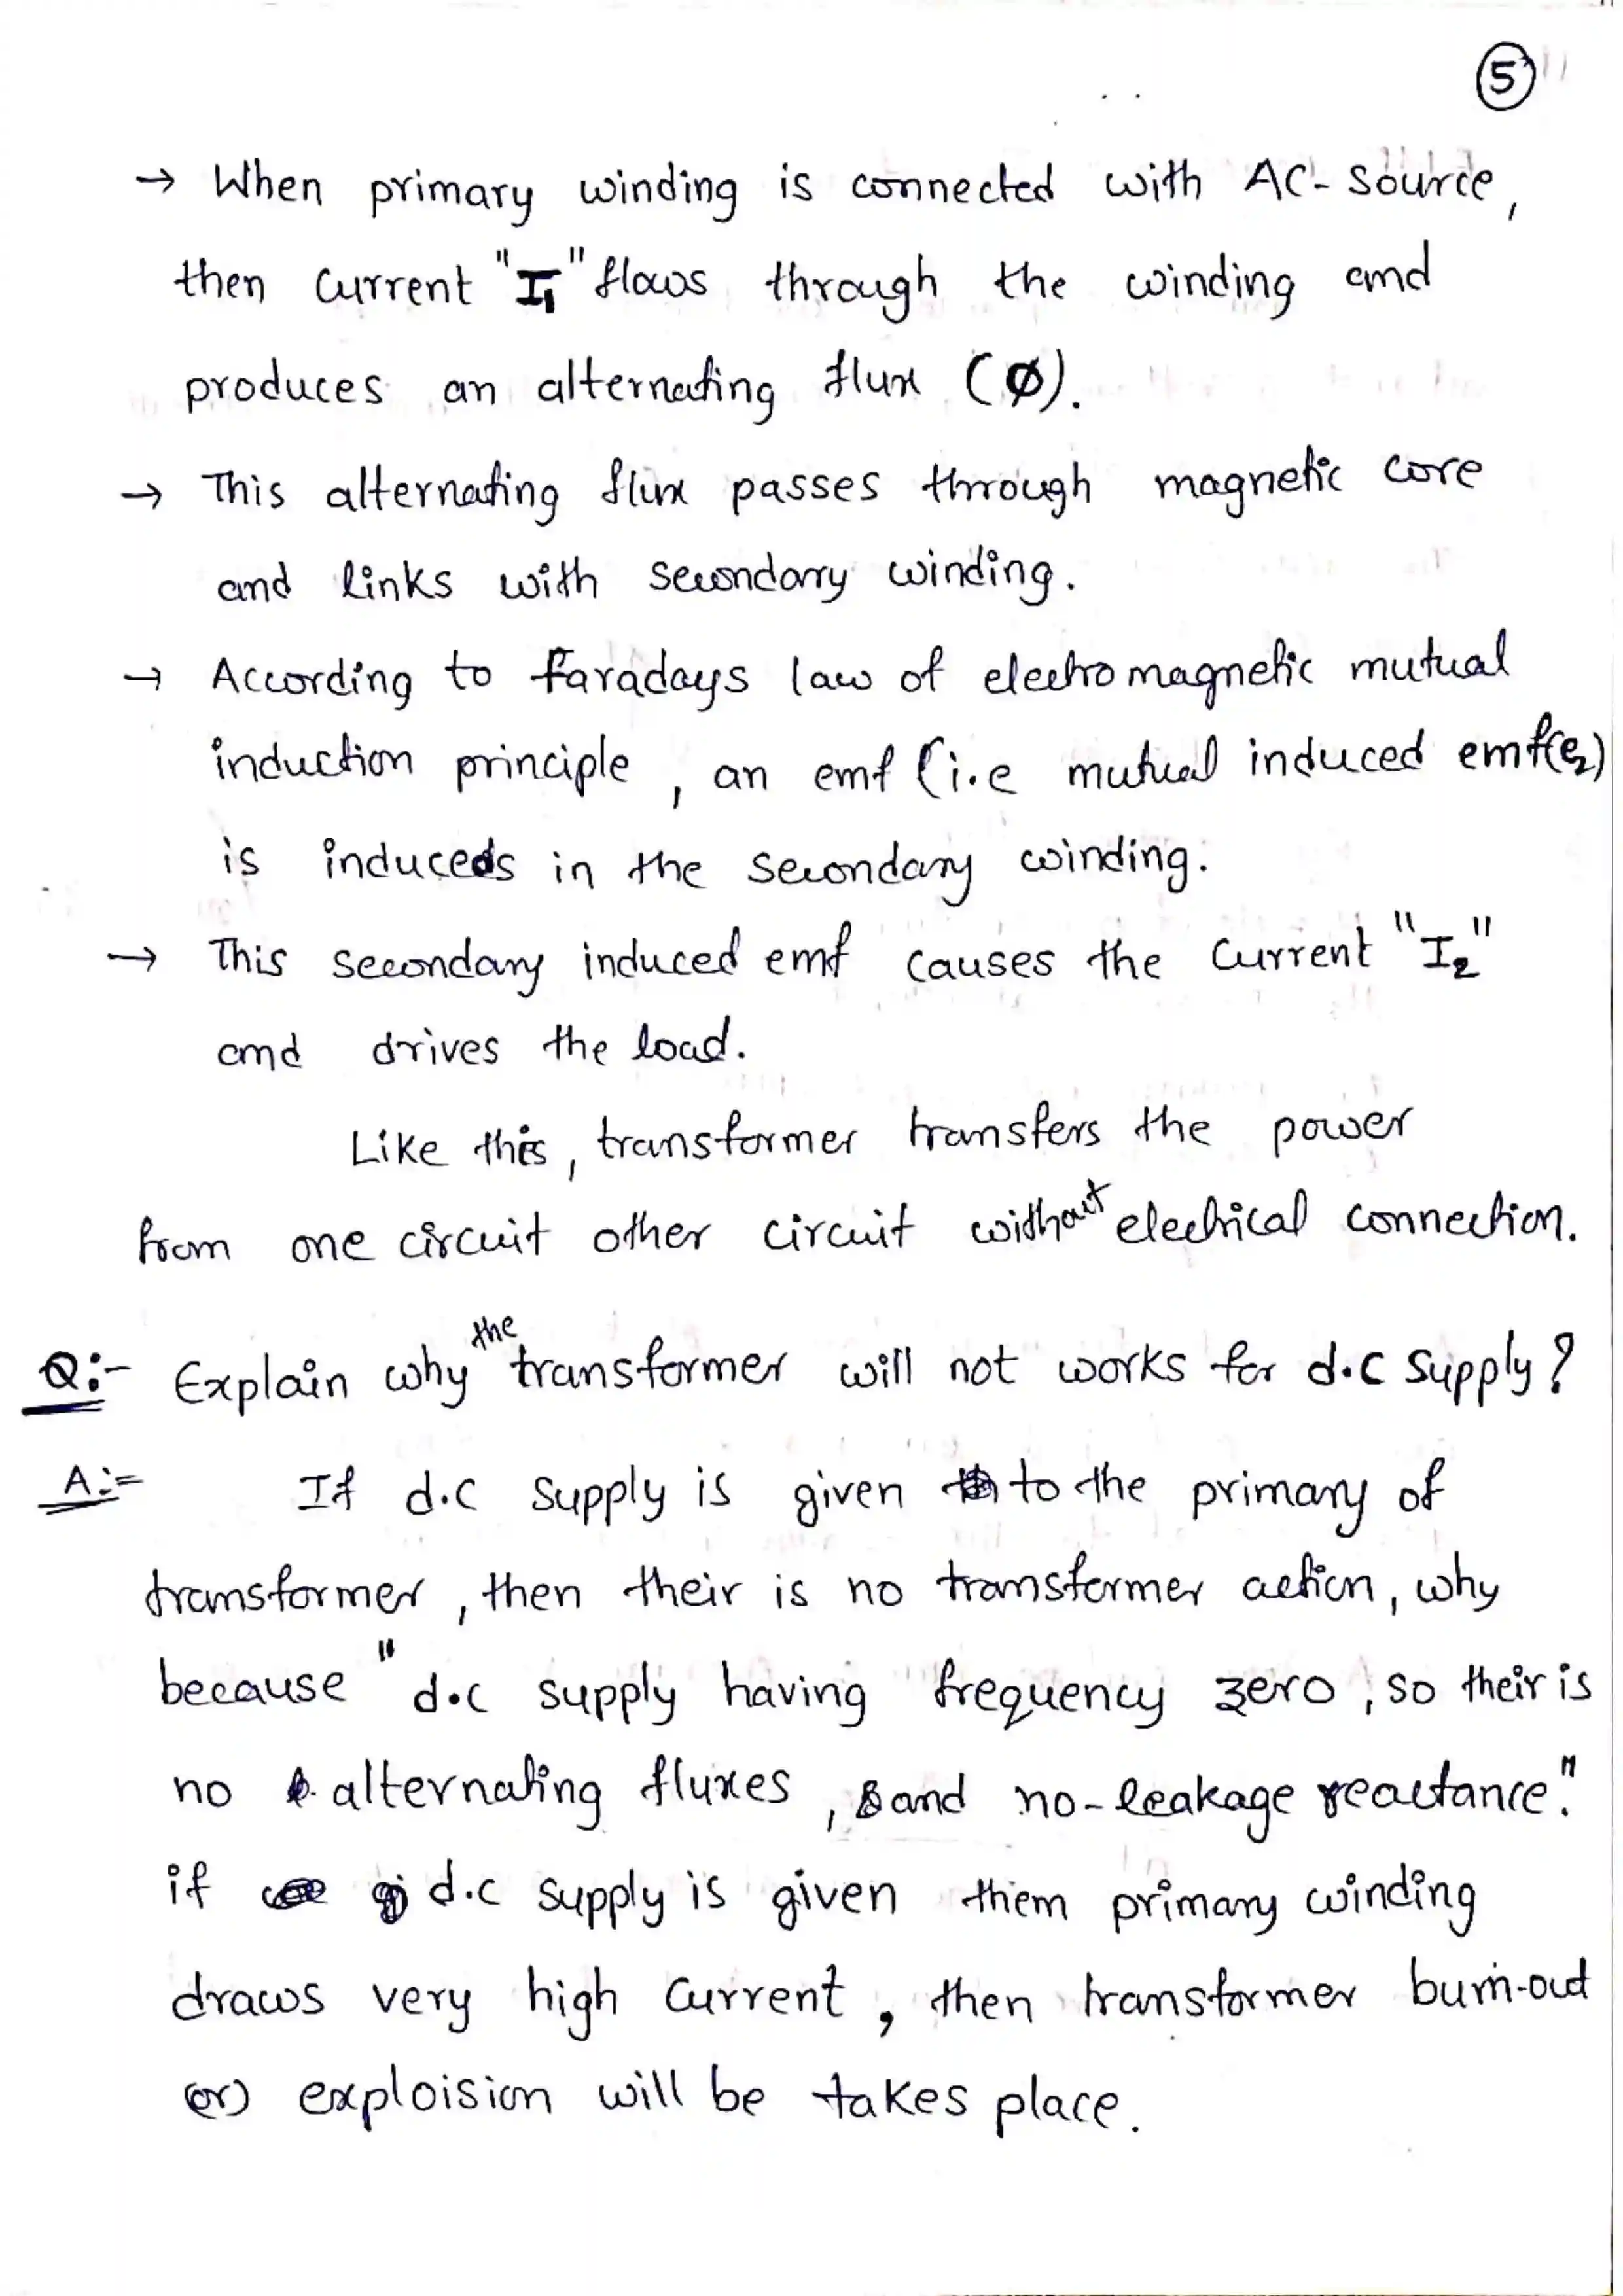 5
→ When primary winding is connected with AC-source,
then current "I₁" flows through the winding and
produces an alternating flux (Ø).
→ This alternating flux passes through magnetic core
and links with secondary winding.
→ According to faradays law of electro magnetic mutual
induction principle, an emf (i.e mutual induced emf(e₂)
is induceds in the secondary winding.
→ This secondary induced emf causes the current "I₂"
and drives the load.
Like this, transformer transfers the power
from one circuit other circuit without electrical connection.
Q:- Explain why the transformer will not works for d.c supply?
A:= If d.c supply is given to the primary of
transformer, then their is no transformer action, why
because "d.c supply having frequency zero, so their is
no alternating fluxes, and no-leakage reactance."
if d.c supply is given them primary winding
draws very high current, then transformer burn-out
(or) exploision will be takes place.